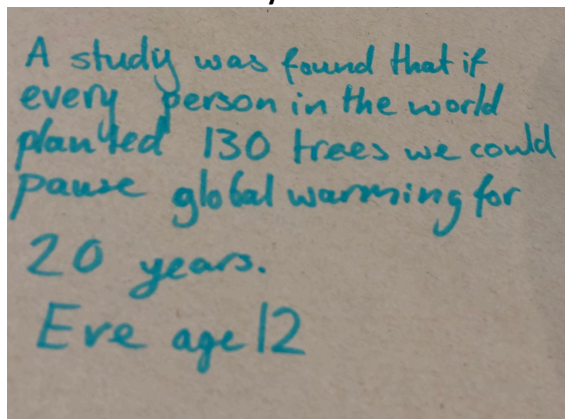 A study was found that if
every person in the world
planted 130 trees we could
pause global warming for
20 years.
Eve age 12